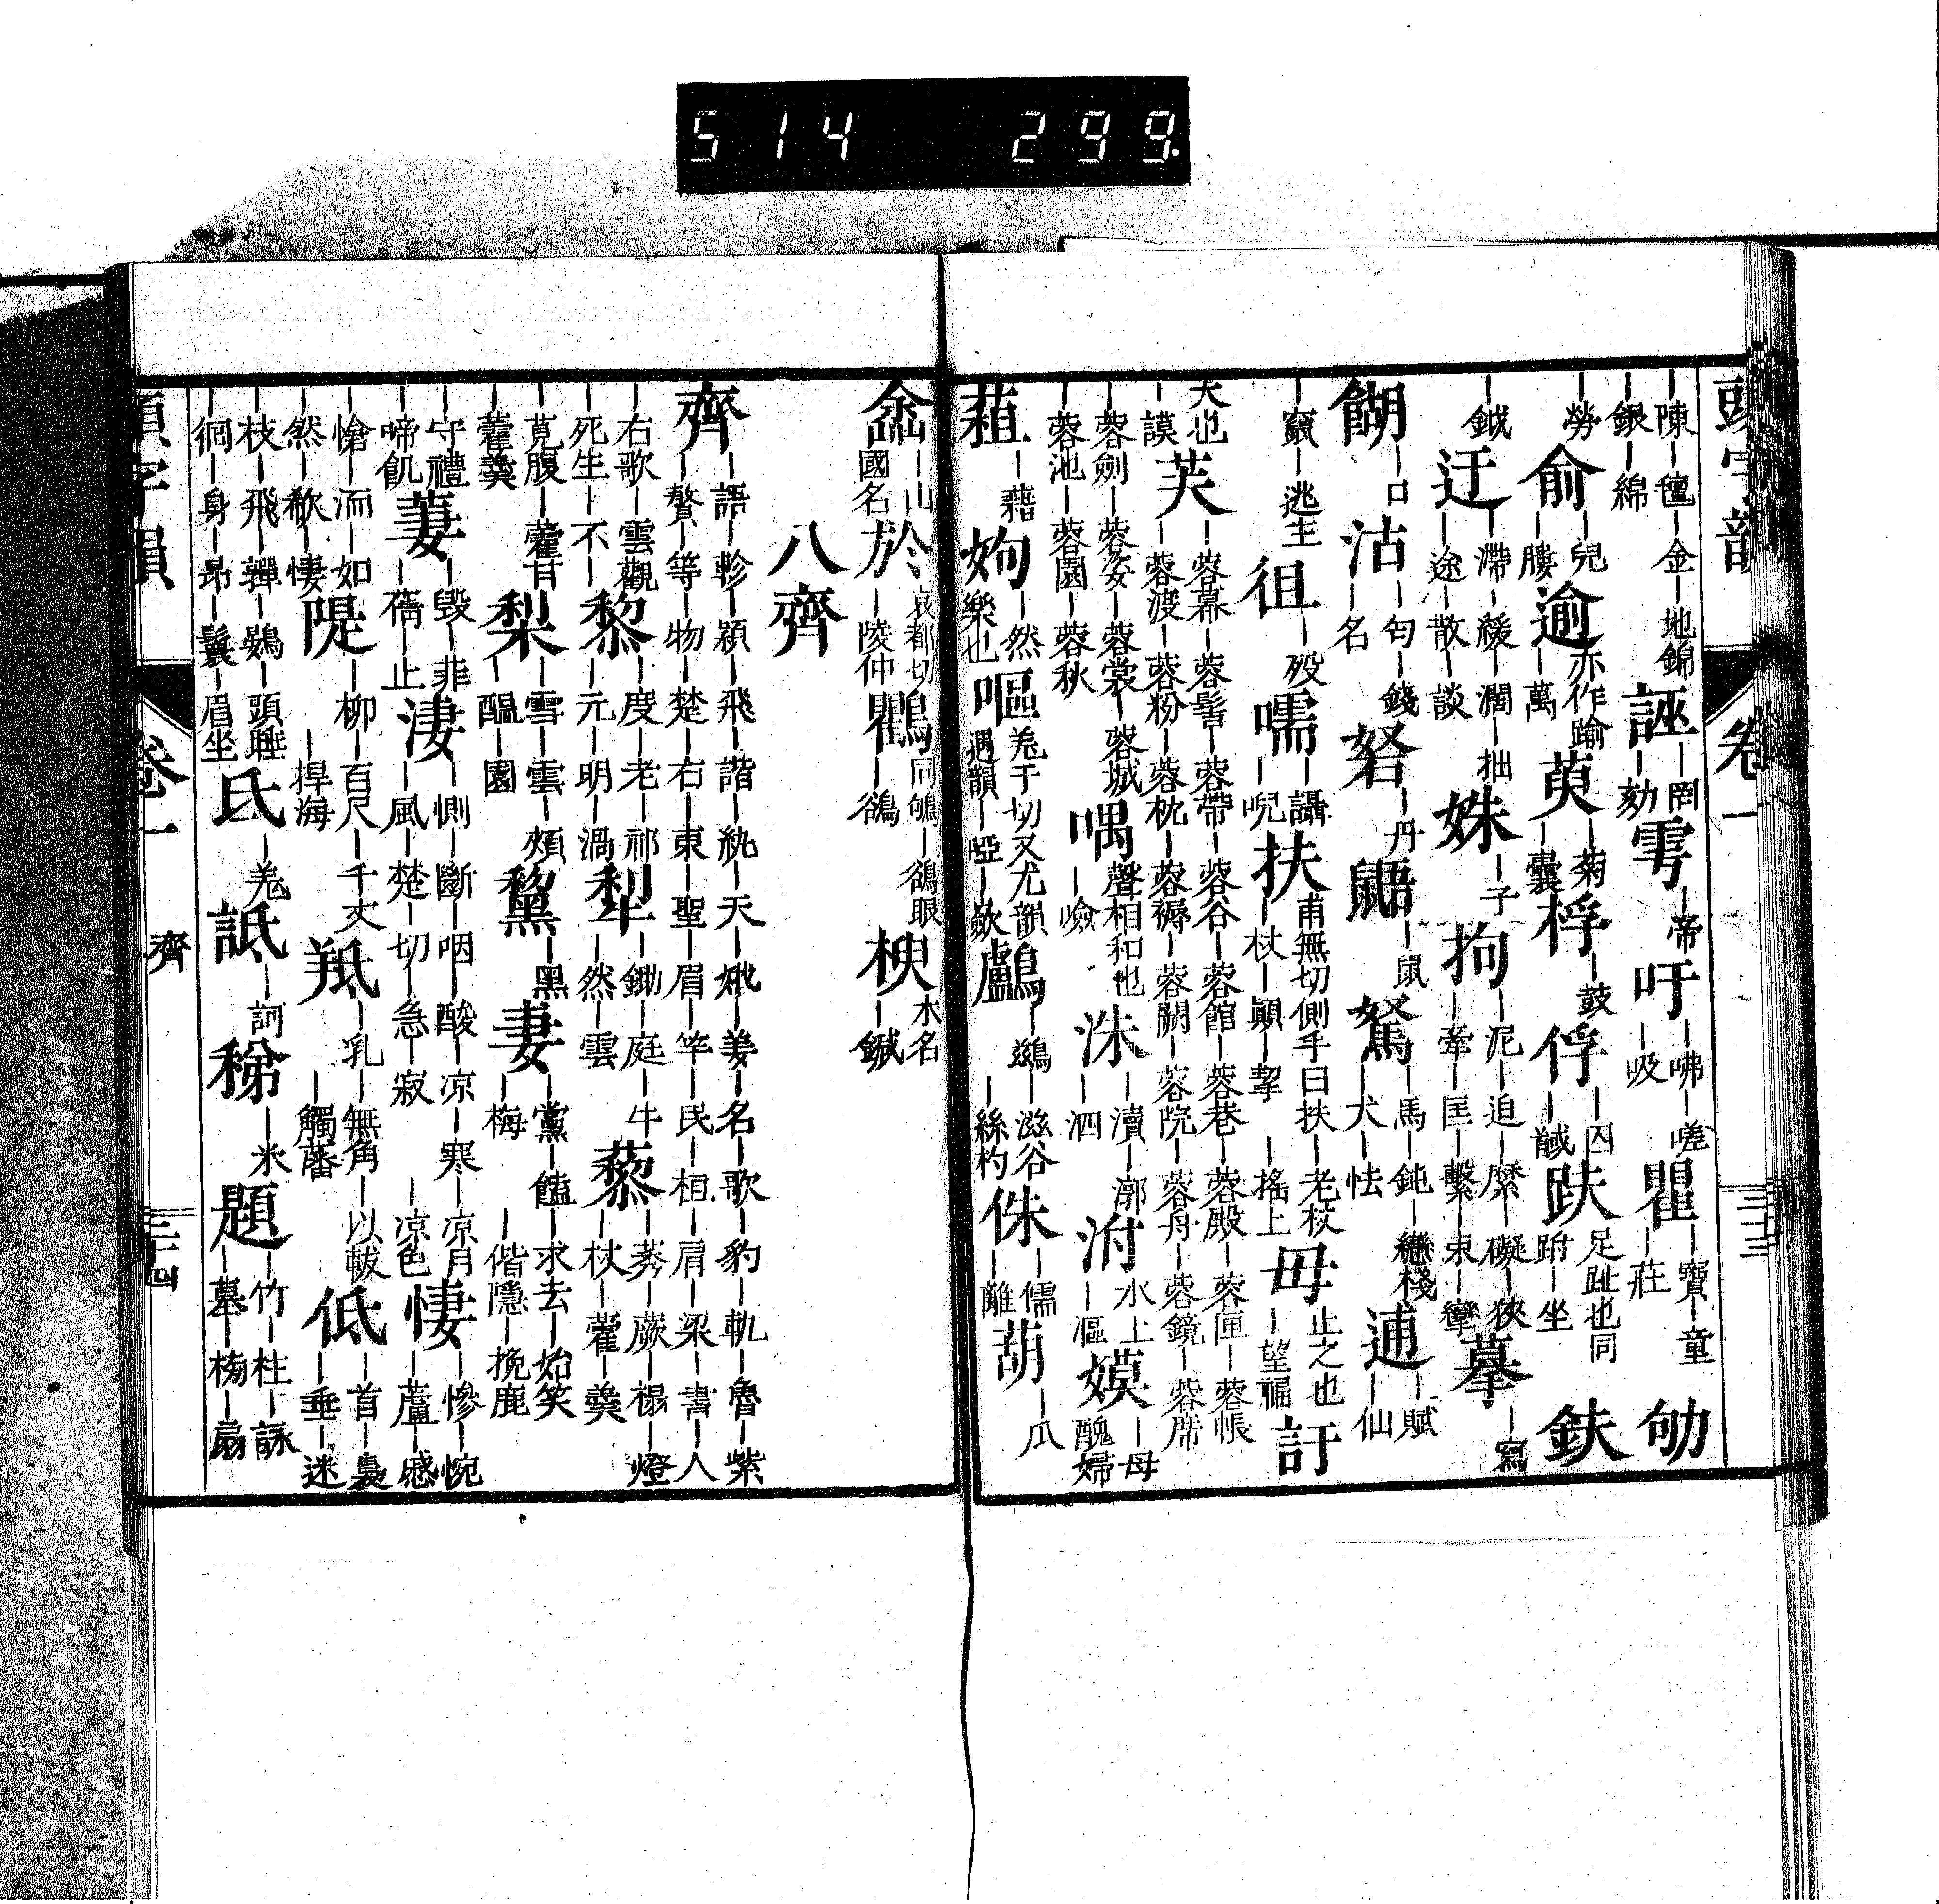 514 299
頭字韻 卷一
｜陳｜氊｜金｜地錦
｜銀｜綿
誣｜罔｜劾
雩｜帝
吁｜咈｜嗟｜吸
瞿｜寶｜童｜莊
劬｜勞
俞｜兒｜腠
逾亦作踰｜萬
萸｜菊｜囊
桴｜鼓
俘｜囚｜馘
趺足趾也同跗｜坐
鈇｜鉞
迂｜滯｜緩｜濶｜拙｜途｜散｜談
姝｜子
拘｜泥｜迫｜縻｜礙｜狹｜牽｜匡｜繫｜束｜攣
摹｜寫
餬｜口
沽｜名
砮｜丹
鼯｜鼠
駑｜馬｜鈍｜戀棧｜犬｜怯
逋｜賦｜仙｜竄｜逃主
徂｜歿
嚅｜讘｜唲
扶甫無切側手曰扶｜老杖｜杖｜顚｜挈｜搖上
毋止之也｜望福
訏大也｜謨
芙｜蓉幕｜蓉髻｜蓉帶｜蓉谷｜蓉館｜蓉巷｜蓉殿｜蓉匣｜蓉帳
｜蓉渡｜蓉粉｜蓉枕｜蓉褥｜蓉關｜蓉院｜蓉丹｜蓉鏡｜蓉席
｜蓉劍｜蓉姿｜蓉裳｜蓉城
｜蓉池｜蓉園｜蓉秋
喁聲相和也｜噞
洙｜瀆｜泗
泭水上｜漚
嫫｜母醜婦
葅｜藉
姁｜然樂也
嘔
鸕｜鷀｜滋谷｜絲杓
侏｜儒｜離
葫｜瓜
嵞｜山國名
於哀都切｜陵仲
鸜同鴝｜鵒｜鵒眼
楰木名｜鍼
八齊
齊｜語｜軫｜穎｜飛｜諧｜紈｜天｜娥｜姜｜名｜歌｜豹｜軌｜魯｜紫
｜贅｜等｜物｜楚｜右｜東｜聖｜眉｜竿｜民｜相｜肩｜梁｜書｜人
｜右歌｜雲觀
｜死生｜不｜
黎｜度｜老｜祁｜元｜明｜渦
犁｜鋤｜庭｜牛｜然｜雲
藜｜莠｜蕨｜榻｜燈｜杖｜藿｜羹
｜莧腹｜藿甘
｜藿羹
梨｜雪｜雲｜頰｜醞｜園
黧｜黑
妻｜黨｜饁｜求去｜始笑｜梅｜偕隱｜挽鹿
｜守禮｜毁｜菲
｜啼飢
萋｜止
淒｜惻｜斷｜咽｜酸｜凉｜寒｜凉月｜風｜楚｜切｜急｜寂｜凉色
悽｜慘｜惋｜蘆｜慼
｜愴｜洏｜如
｜然｜欷｜悽
隄｜柳｜百尺｜千丈｜捍海
羝｜乳｜無角｜以軷｜觸藩
低｜首｜裊｜垂｜迷
｜枝｜飛｜嚲｜鬟｜頭睡
｜徊｜身｜昂｜鬟｜眉坐
氐｜羌
詆｜訶
稊｜米
題｜竹｜柱｜詠｜墓｜榜｜扇
頭字韻 卷一 齊 三四